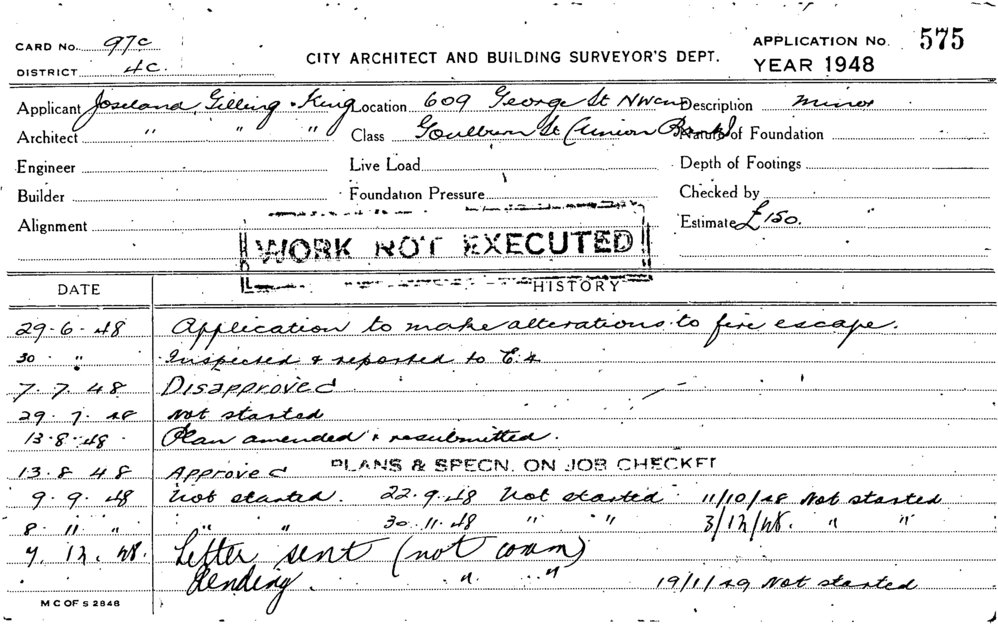 CARD No. 97c
DISTRICT 4C.
CITY ARCHITECT AND BUILDING SURVEYOR'S DEPT.
APPLICATION No. 575
YEAR 1948
Applicant Joseland, Gilling & King Location 609 George St NW cnr Description Minor
Architect " " " Class Goulburn St (Union Bank) Nature of Foundation
Engineer Live Load Depth of Footings
Builder Foundation Pressure Checked by
Alignment Estimate £150.
WORK NOT EXECUTED
DATE HISTORY
29.6.48 Application to make alterations to fire escape.
30 " Inspected & reported to
7.7.48 Disapproved
29.7.48 Not started
13.8.48 Plan amended & resubmitted.
13.8.48 Approved PLANS & SPECN. ON JOB CHECKED
9.9.48 Not started. 22.9.48 Not started 11/10/48 Not started
8.11 " " " 30.11.48 " " 3/12/48. " "
7.12.48. Letter sent (not comm)
Pending. " " 19/1/49 Not started
M C OF S 2848